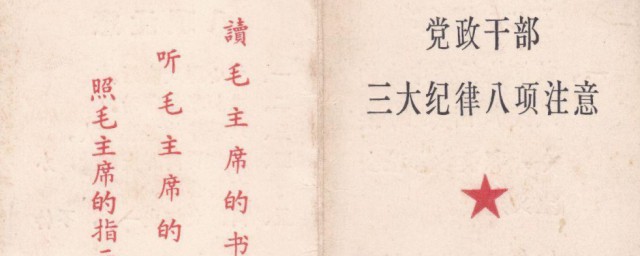 党政干部
三大纪律八项注意
讀毛主席的书
听毛主席的
照毛主席的指